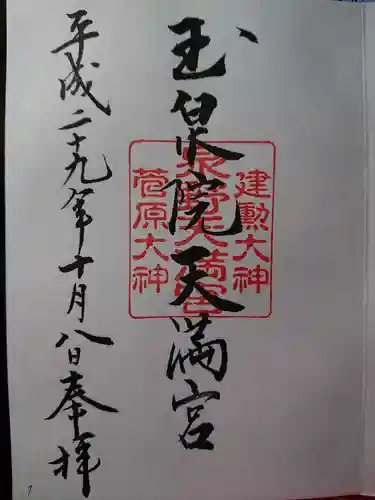 玉泉院天満宮
建勲大神
泉野天満宮
菅原大神
平成二十九年十月八日奉拝